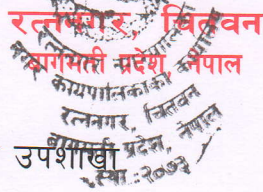 रत्ननगर, चितवन
बागमती प्रदेश, नेपाल
कार्यपालिकाको कार्यालय
रत्ननगर, चितवन
बागमती प्रदेश, नेपाल
स्था : २०७३
उपशाखा